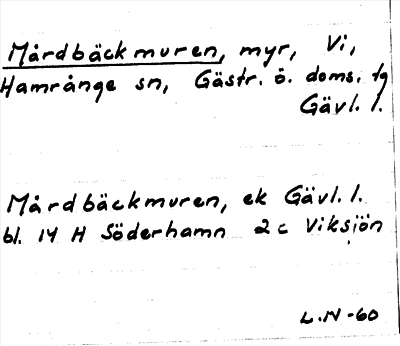 Mårdbäckmuren, myr, Vi,
Hamrånge sn, Gästr. ö. doms. tg
Gävl. l.
Mårdbäckmuren, ek Gävl. l.
bl. 14 H Söderhamn 2 c Viksjön
L.N-60